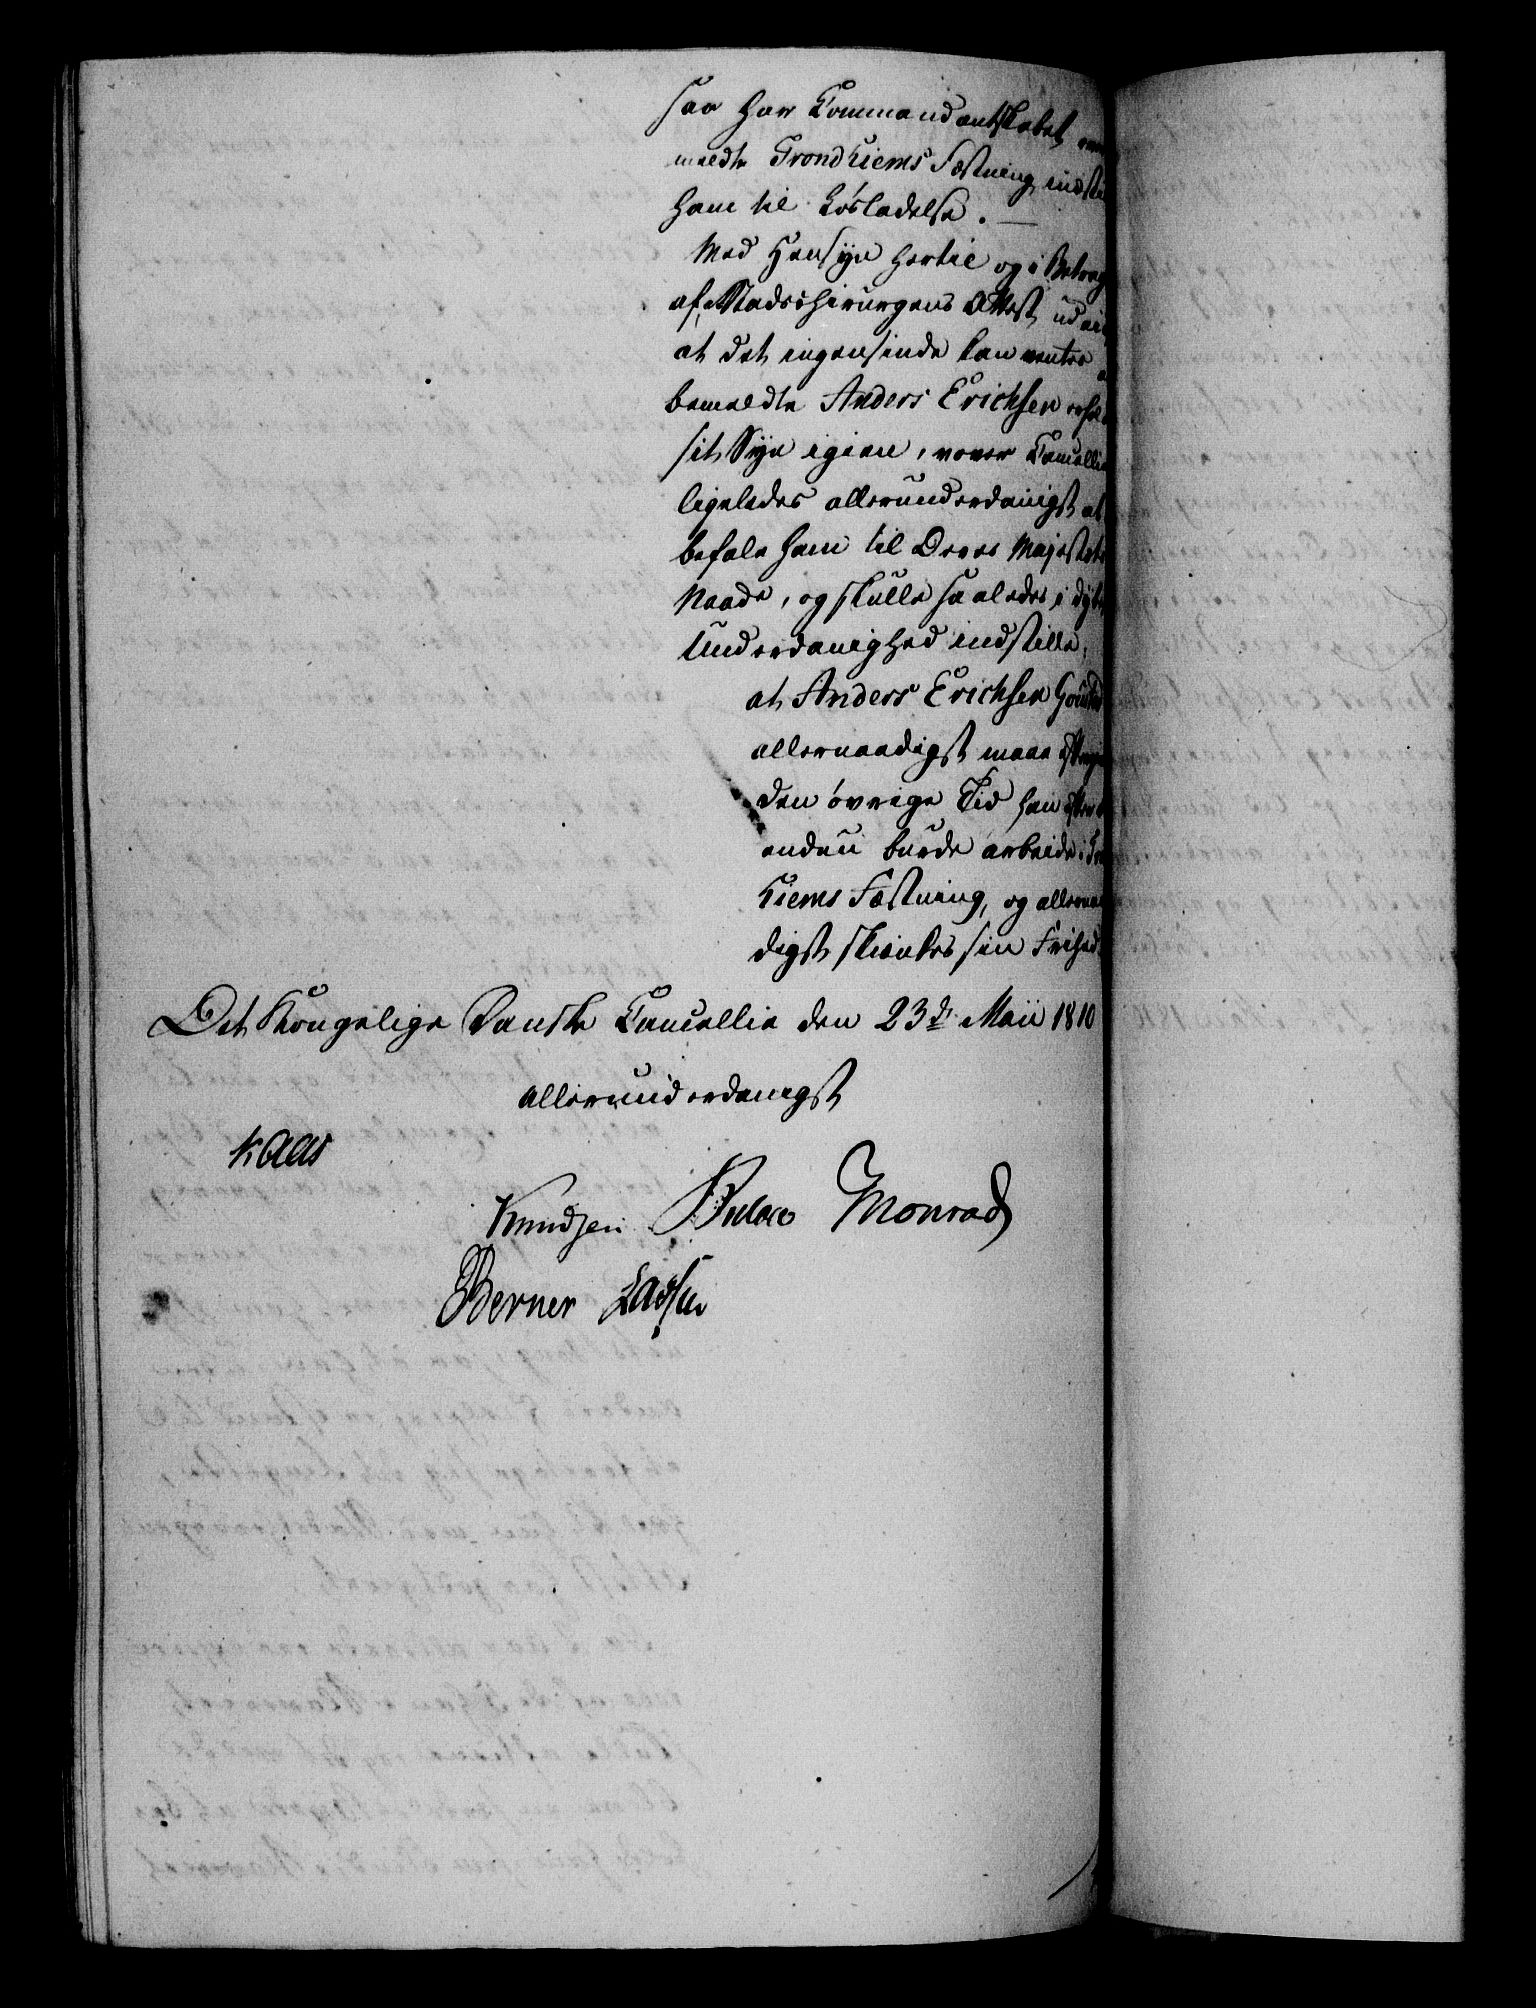 saa har Commandantskabet
meldte Trondhiems Fæstning
ham til Løsladelse. —
Med Hensyn hertil og i
af Stadschirurgens Attest
at det ingensinde kan ventes
bemeldte Anders Erichsen
sit Syn igien, vover
ligeledes allerunderdanigst at
befale ham til Deres Majestæts
Naade, og skulle saaledes i
Underdanighed indstille,
at Anders Erichsen
allernaadigst maae
den övrige Tid han
endnu burde arbeide i
hiems Fæstning, og
digst skienkes sin Frihed
Det Kongelige Danske Cancellie den 23de Maii 1810
allerunderdanigst
Kaas
Knudsen Bülow Monrad
Berner Lassen